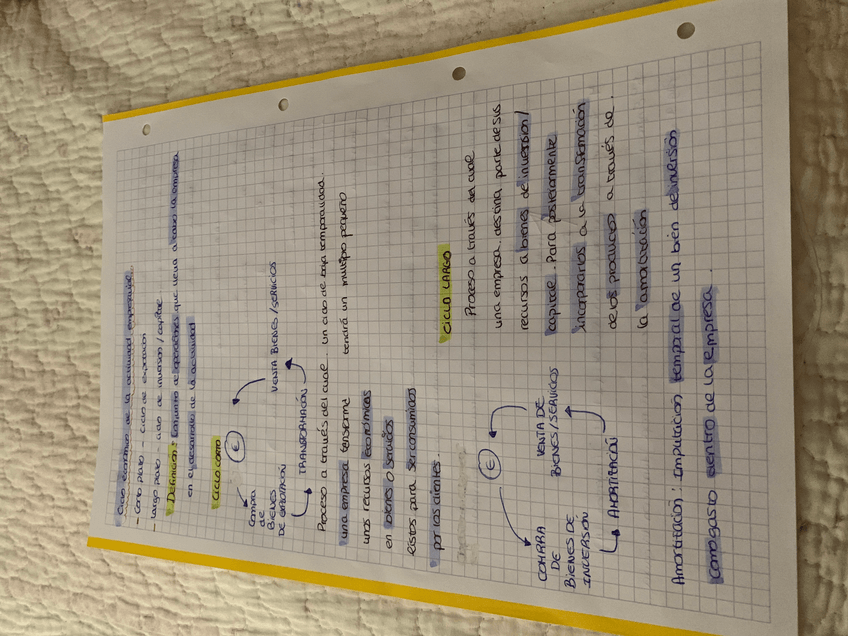 Ciclo económico de la actividad empresarial
- Corto plazo - ciclo de explotación
- Largo plazo - ciclo de inversión / capital
Definición: Conjunto de operaciones que lleva a cabo la empresa
en el desarrollo de la actividad
CICLO CORTO
€
Compra
de
BIENES
DE EXPLOTACIÓN
VENTA BIENES/SERVICIOS
TRANSFORMACIÓN
Proceso a través del cual
una empresa transforma
unos recursos económicos
en bienes o servicios
listos para ser consumidos
por los clientes.
un ciclo de baja temporalidad.
tendrá un multiplo pequeño
CICLO LARGO
€
COMPRA
DE
BIENES DE
INVERSIÓN
VENTA DE
BIENES/SERVICIOS
AMORTIZACIÓN
Proceso a través del cual
una empresa destina parte de sus
recursos a bienes de inversión/
capital. Para posteriormente
incorporarlos a la transformación
de los productos a través de.
la amortización
Amortización: imputación temporal de un bien de inversión
como gasto dentro de la empresa.